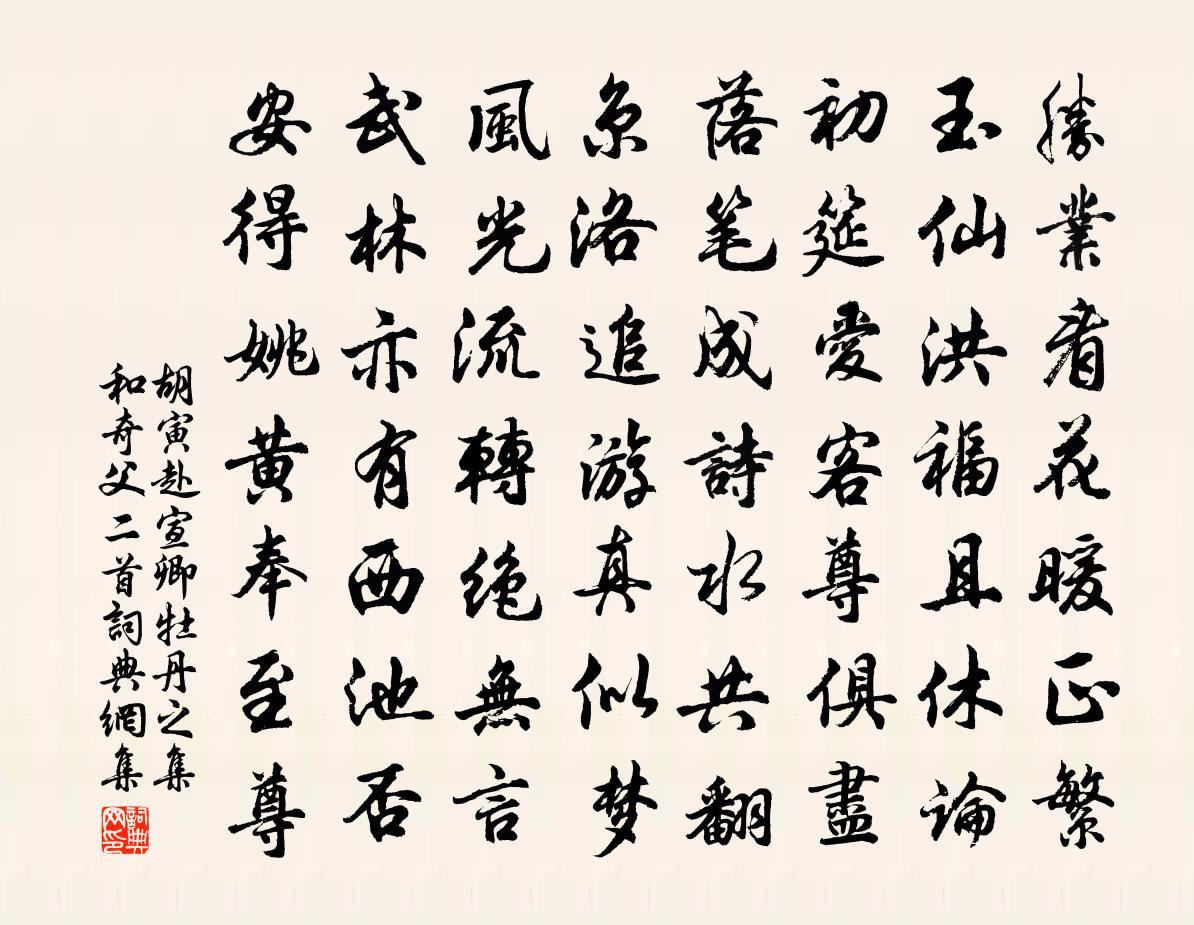 勝業看花暖正繁
玉仙洪福且休論
初筵愛客尊俱盡
落笔成詩水共翻
京洛追游真似梦
風光流轉绝無言
武林亦有西池否
安得姚黄奉至尊
胡寅赴宣卿牡丹之集
和奇父二首詞典網集
詞典
网印